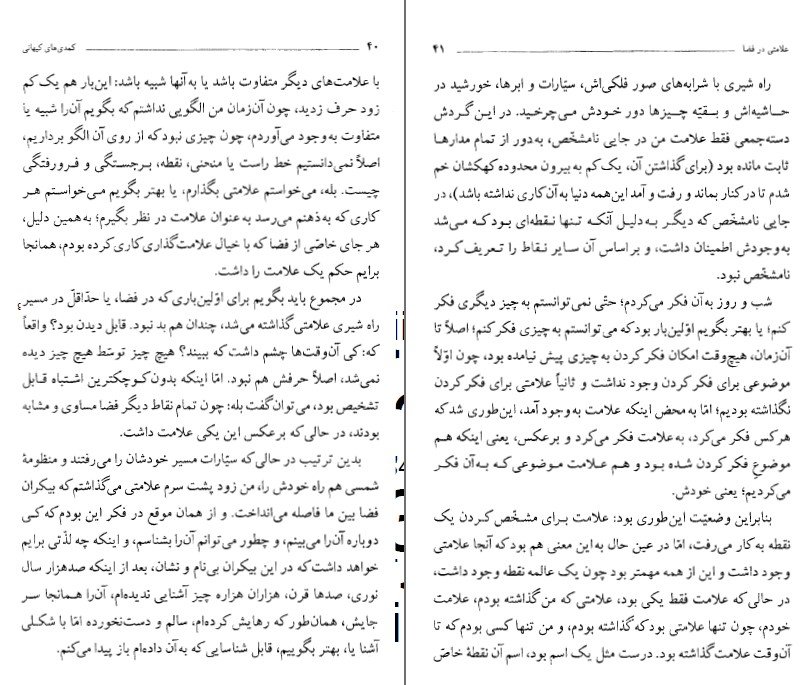 کمدی‌های کیهانی ۴۰
با علامت‌های دیگر متفاوت باشد یا به آنها شبیه باشد: این‌بار هم یک کم
زود حرف زدید، چون آن‌زمان من الگویی نداشتم که بگویم آن‌را شبیه یا
متفاوت به‌وجود می‌آوردم، چون چیزی نبود که از روی آن الگو برداریم،
اصلاً نمی‌دانستیم خط راست یا منحنی، نقطه، برجستگی و فرورفتگی
چیست. بله، می‌خواستم علامتی بگذارم، یا بهتر بگویم می‌خواستم هر
کاری که به‌ذهنم می‌رسد به عنوان علامت در نظر بگیرم؛ به همین دلیل،
هر جای خاصّی از فضا که با خیال علامت‌گذاری کاری کرده بودم، همانجا
برایم حکم یک علامت را داشت.
در مجموع باید بگویم برای اوّلین‌باری که در فضا، یا حدّاقلّ در مسیر
راه شیری علامتی گذاشته می‌شد، چندان هم بد نبود. قابل دیدن بود؟ واقعاً
که: کی آن‌وقت‌ها چشم داشت که ببیند؟ هیچ چیز توسّط هیچ چیز دیده
نمی‌شد، اصلاً حرفش هم نبود. امّا اینکه بدون کوچکترین اشتباه قابل
تشخیص بود، می‌توان گفت بله: چون تمام نقاط دیگر فضا مساوی و مشابه
بودند، در حالی که برعکس این یکی علامت داشت.
بدین ترتیب در حالی که سیّارات مسیر خودشان را می‌رفتند و منظومهٔ
شمسی هم راه خودش را، من زود پشت سرم علامتی می‌گذاشتم که بیکران
فضا بین ما فاصله می‌انداخت. و از همان موقع در فکر این بودم که کی
دوباره آن‌را می‌بینم، و چطور می‌توانم آن‌را بشناسم، و اینکه چه لذّتی برایم
خواهد داشت که در این بیکران بی‌نام و نشان، بعد از اینکه صدهزار سال
نوری، صدها قرن، هزاران هزاره چیز آشنایی ندیده‌ام، آن‌را همانجا سر
جایش، همان‌طور که رهایش کرده‌ام، سالم و دست‌نخورده امّا با شکلی
آشنا یا، بهتر بگوییم، قابل شناسایی که به آن داده‌ام باز پیدا می‌کنم.
علامتی در فضا ۴۱
راه شیری با شرابه‌های صور فلکی‌اش، سیّارات و ابرها، خورشید در
حاشیه‌اش و بقیّه چیزها دور خودش می‌چرخید. در این گردش
دسته‌جمعی فقط علامت من در جایی نامشخّص، به‌دور از تمام مدارها
ثابت مانده بود (برای گذاشتن آن، یک کم به بیرون محدوده کهکشان خم
شدم تا در کنار بماند و رفت و آمد این‌همه دنیا به آن کاری نداشته باشد)، در
جایی نامشخّص که دیگر به دلیل آنکه تنها نقطه‌ای بود که می‌شد
به‌وجودش اطمینان داشت، و بر اساس آن سایر نقاط را تعریف کرد،
نامشخّص نبود.
شب و روز به آن فکر می‌کردم؛ حتّی نمی‌توانستم به چیز دیگری فکر
کنم؛ یا بهتر بگویم اوّلین‌بار بود که می‌توانستم به چیزی فکر کنم؛ اصلاً تا
آن‌زمان، هیچ‌وقت امکان فکر کردن به‌چیزی پیش نیامده بود، چون اوّلاً
موضوعی برای فکر کردن وجود نداشت و ثانیاً علامتی برای فکر کردن
نگذاشته بودیم؛ امّا به محض اینکه علامت به‌وجود آمد، این‌طوری شد که
هرکس فکر می‌کرد، به علامت فکر می‌کرد و برعکس، یعنی اینکه هم
موضوع فکر کردن شده بود و هم علامت موضوعی که به آن فکر
می‌کردیم؛ یعنی خودش.
بنابراین وضعیّت این‌طوری بود: علامت برای مشخّص کردن یک
نقطه به کار می‌رفت، امّا در عین حال به این معنی هم بود که آنجا علامتی
وجود داشت و این از همه مهمتر بود چون یک عالمه نقطه وجود داشت،
در حالی که علامت فقط یکی بود، علامتی که من گذاشته بودم، علامت
خودم، چون تنها علامتی بود که گذاشته بودم، و من تنها کسی بودم که تا
آن‌وقت علامت گذاشته بود. درست مثل یک اسم بود، اسم آن نقطهٔ خاصّ